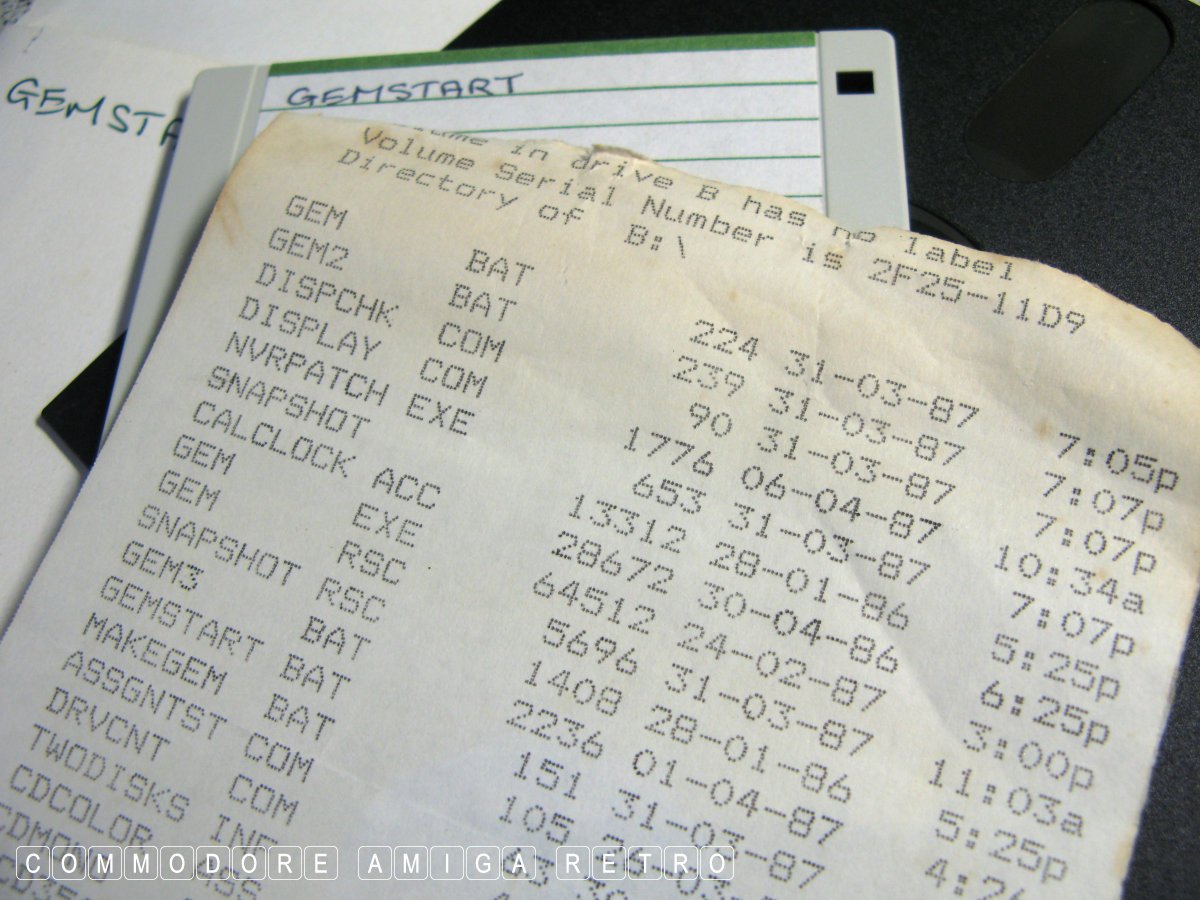 GEMSTA
GEMSTART
in drive B has no label
Volume Serial Number is 2F25-11D9
Directory of B:\
GEM BAT 224 31-03-87 7:05p
GEM2 BAT 239 31-03-87 7:07p
DISPCHK COM 90 31-03-87 7:07p
DISPLAY COM 1776 06-04-87 10:34a
NVRPATCH EXE 653 31-03-87 7:07p
SNAPSHOT 13312 28-01-86 5:25p
CALCLOCK ACC 28672 30-04-86 6:25p
GEM EXE 64512 24-02-87 3:00p
GEM RSC 5696 31-03-87 11:03a
SNAPSHOT RSC 1408 28-01-86 5:25p
GEM3 BAT 2236 01-04-87
GEMSTART BAT 151 31-03-87
MAKEGEM BAT 105
ASSGNTST COM
DRVCNT COM
TWODISKS INF
CDCOLOR ASS
COMMODORE AMIGA RETRO